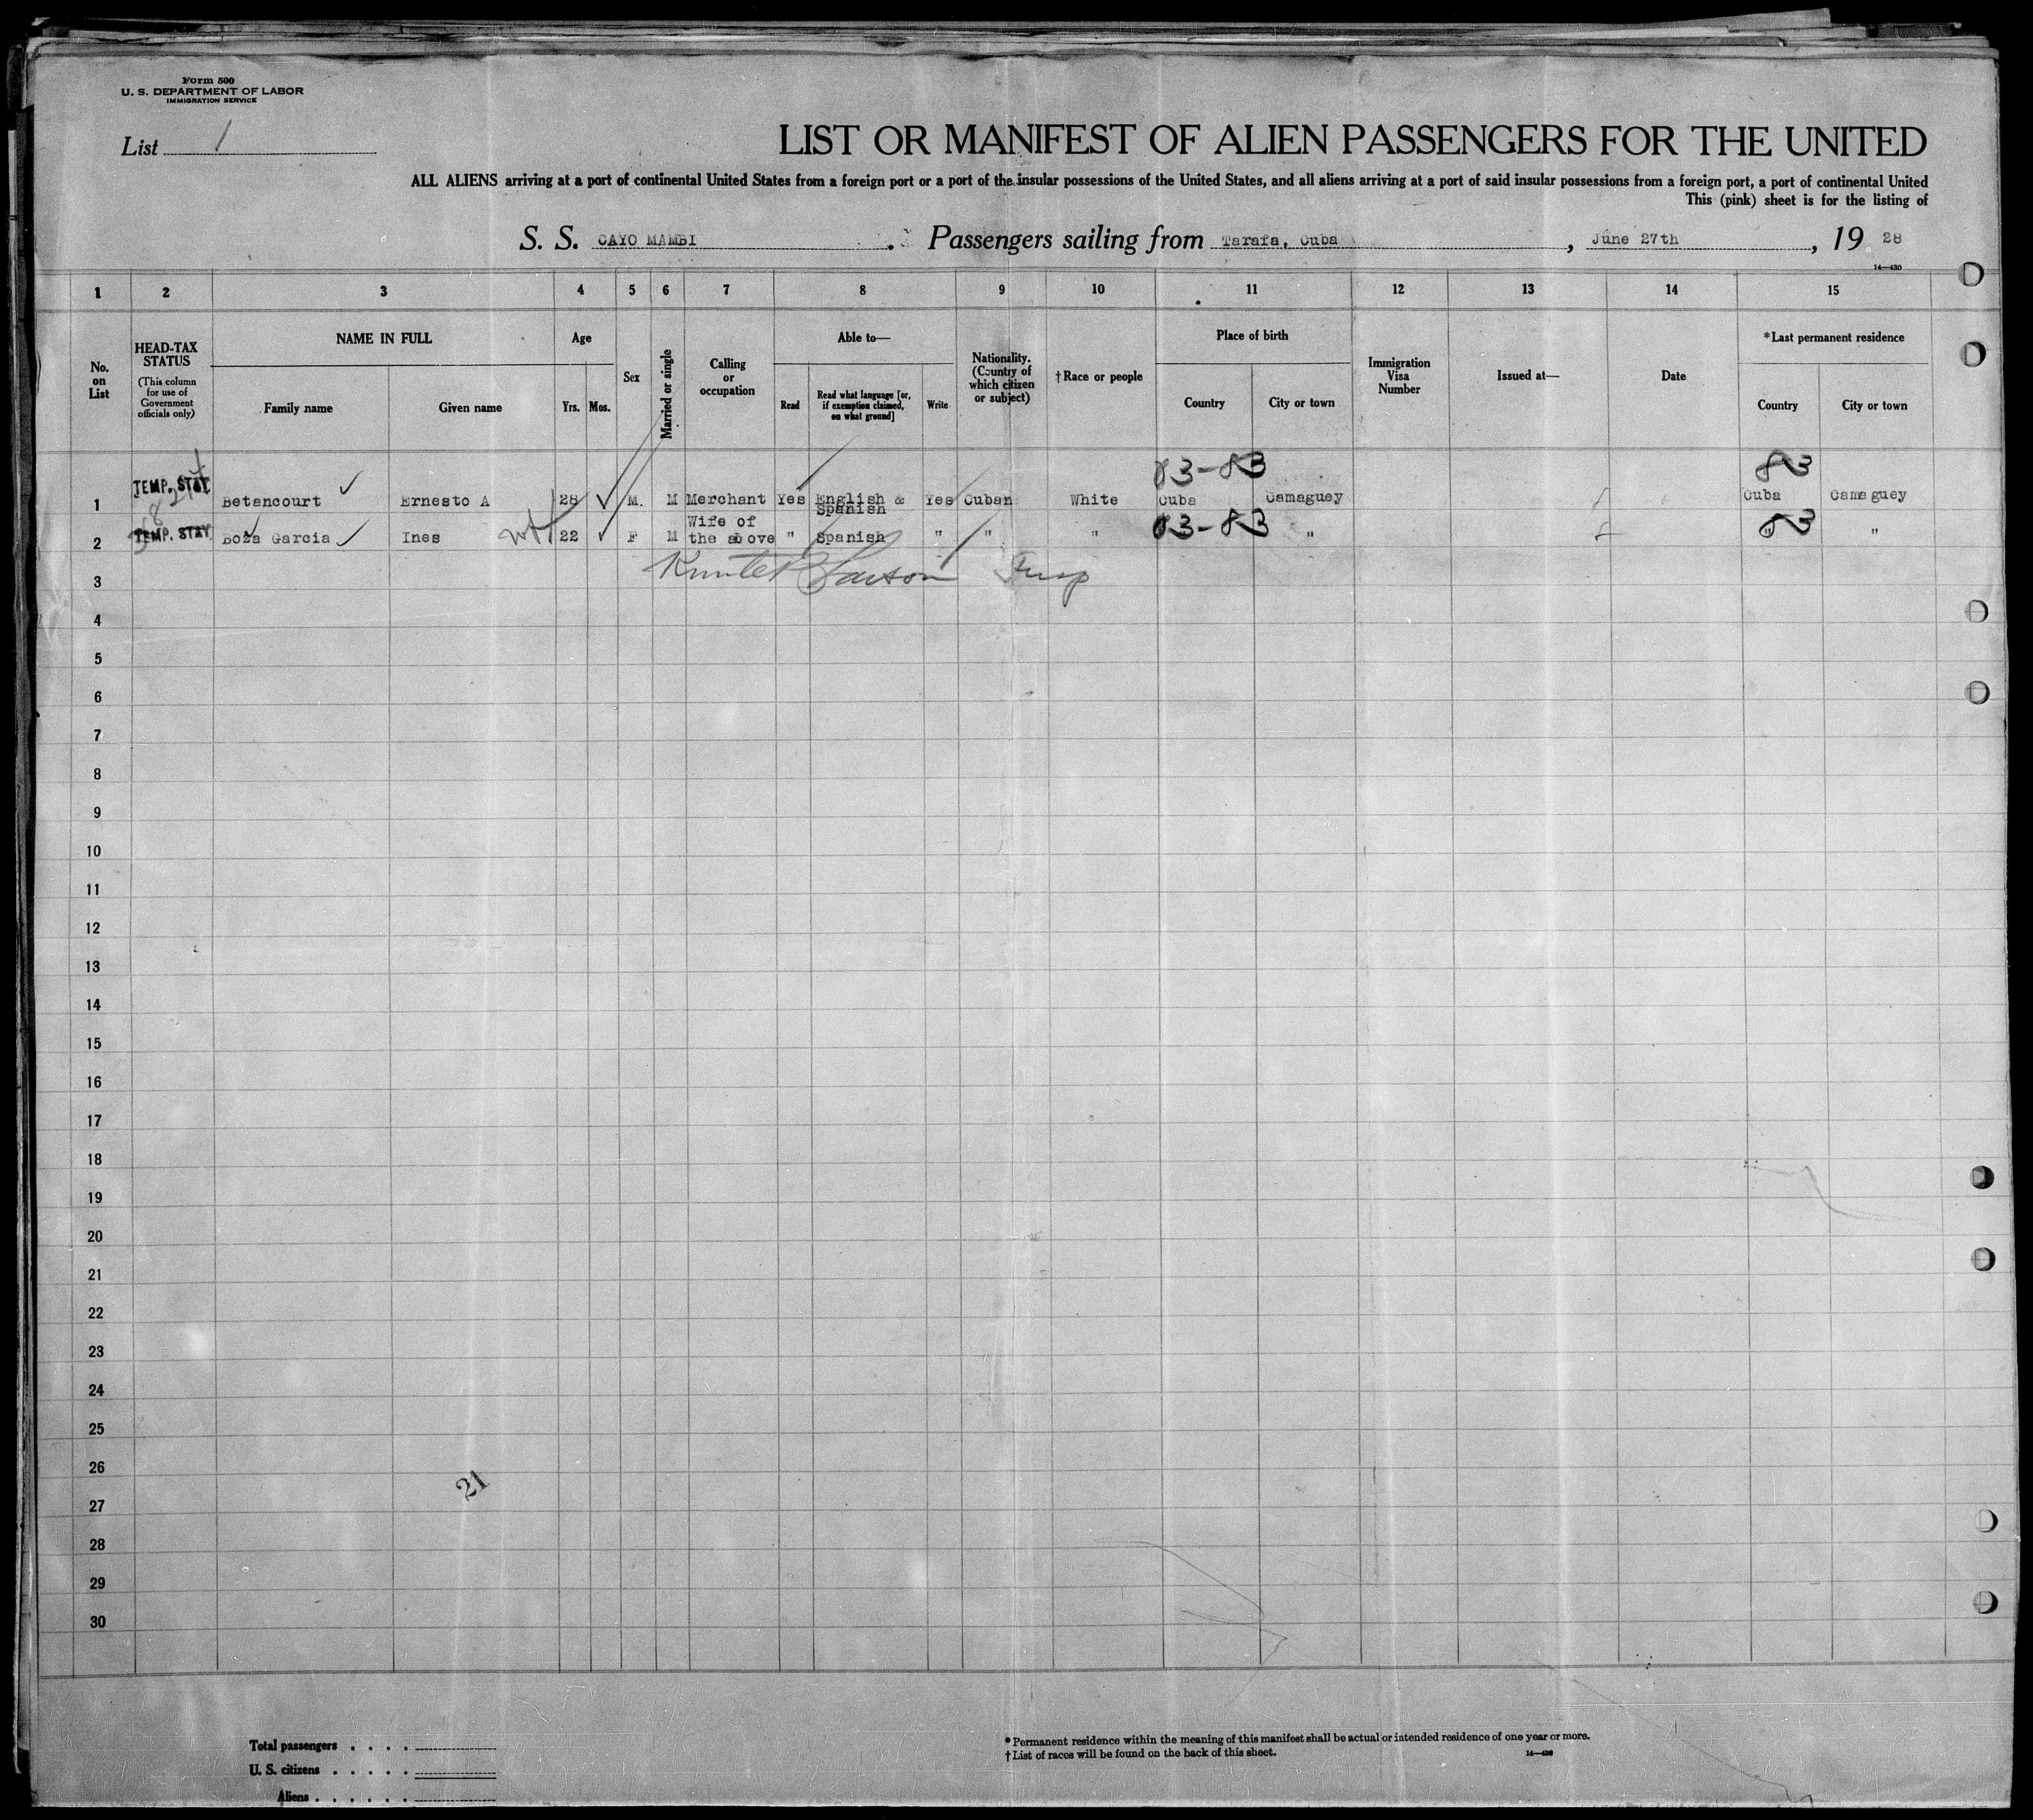 Form 500
U. S. DEPARTMENT OF LABOR
IMMIGRATION SERVICE
List 1
LIST OR MANIFEST OF ALIEN PASSENGERS FOR THE UNITED
ALL ALIENS arriving at a port of continental United States from a foreign port or a port of the insular possessions of the United States, and all aliens arriving at a port of said insular possessions from a foreign port, a port of continental United
This (pink) sheet is for the listing of
S. S. CAYO MAMBI . Passengers sailing from Tarafa, Cuba , June 27th , 19 28
14—430
1 2 3 4 5 6 7 8 9 10 11 12 13 14 15
No. on List
HEAD-TAX STATUS
(This column for use of Government officials only)
NAME IN FULL
Family name Given name
Age
Yrs. Mos.
Sex
Married or single
Calling or occupation
Able to—
Read
Read what language [or, if exemption claimed, on what ground]
Write
Nationality. (Country of which citizen or subject)
†Race or people
Place of birth
Country City or town
Immigration Visa Number
Issued at—
Date
*Last permanent residence
Country City or town
83-83 83
1 TEMP. STAY Betancourt Ernesto A 28 M. M Merchant Yes English & Spanish Yes Cuban White Cuba Camaguey Cuba Camaguey
83-83 83
2 TEMP. STAY Boza Garcia Ines 22 F M Wife of the above " Spanish " " " " " "
3
4
5
6
7
8
9
10
11
12
13
14
15
16
17
18
19
20
21
22
23
24
25
26
21
27
28
29
30
Total passengers . . . .
U. S. citizens . . . . .
Aliens . . . . . .
*Permanent residence within the meaning of this manifest shall be actual or intended residence of one year or more.
†List of races will be found on the back of this sheet.
14—430